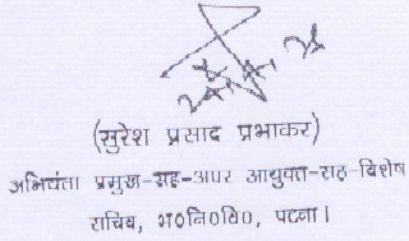 (सुरेश प्रसाद प्रभाकर)
अभियंता प्रमुख-सह-अपर आयुक्त-सह-विशेष
सचिव, भ०नि०वि०, पटना।